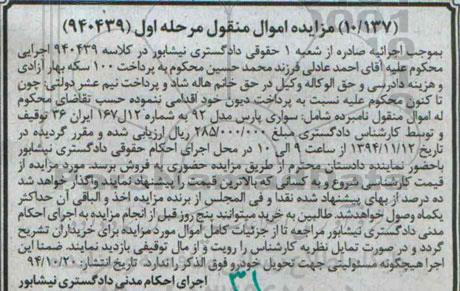 (۱۰/۱۳۷) مزایده اموال منقول مرحله اول (۹۴۰۴۳۹)
بموجب اجرائیه صادره از شعبه ۱ حقوقی دادگستری نیشابور در کلاسه ۹۴۰۴۳۹ اجرایی
محکوم علیه آقای احمد عادلی فرزند محمد حسین محکوم به پرداخت ۱۰۰ سکه بهار آزادی
و هزینه دادرسی و حق الوکاله وکیل در حق خانم هاله شاد و پرداخت نیم عشر دولتی: چون
تا کنون محکوم علیه نسبت به پرداخت دیون خود اقدامی ننموده حسب تقاضای محکوم
له اموال منقول نامبرده شامل: سواری پارس مدل ۹۲ به شماره ۱۶۷ل۱۲ ایران ۳۶ توقیف
و توسط کارشناس دادگستری مبلغ ۲۸۵/۰۰۰/۰۰۰ ریال ارزیابی شده و مقرر گردیده در
تاریخ ۱۳۹۴/۱۱/۱۲ از ساعت ۹ الی ۱۰ در محل اجرای احکام حقوقی دادگستری نیشابور
باحضور نماینده دادستان محترم از طریق مزایده حضوری به فروش برسد. مورد مزایده از
قیمت کارشناسی شروع و به کسانی که بالاترین قیمت را پیشنهاد نمایند واگذار خواهد شد
ده درصد از بهای پیشنهاد شده نقدا و فی المجلس از برنده مزایده اخذ و الباقی آن حداکثر
یکماه وصول خواهدشد. طالبین به خرید میتوانند پنج روز قبل از انجام مزایده به اجرای احکام
مدنی دادگستری نیشابور مراجعه تا از جزئیات کامل اموال مورد مزایده برای خریداران تشریح
گردد و در صورت تمایل نظریه کارشناس را رویت و از مال توقیفی بازدید نمایند. ضمنا این
اجرا هیچگونه مسئولیتی جهت تحویل خودرو فوق الذکر را ندارد. تاریخ انتشار: ۹۴/۱۰/۲۰
اجرای احکام مدنی دادگستری نیشابور
۳۱